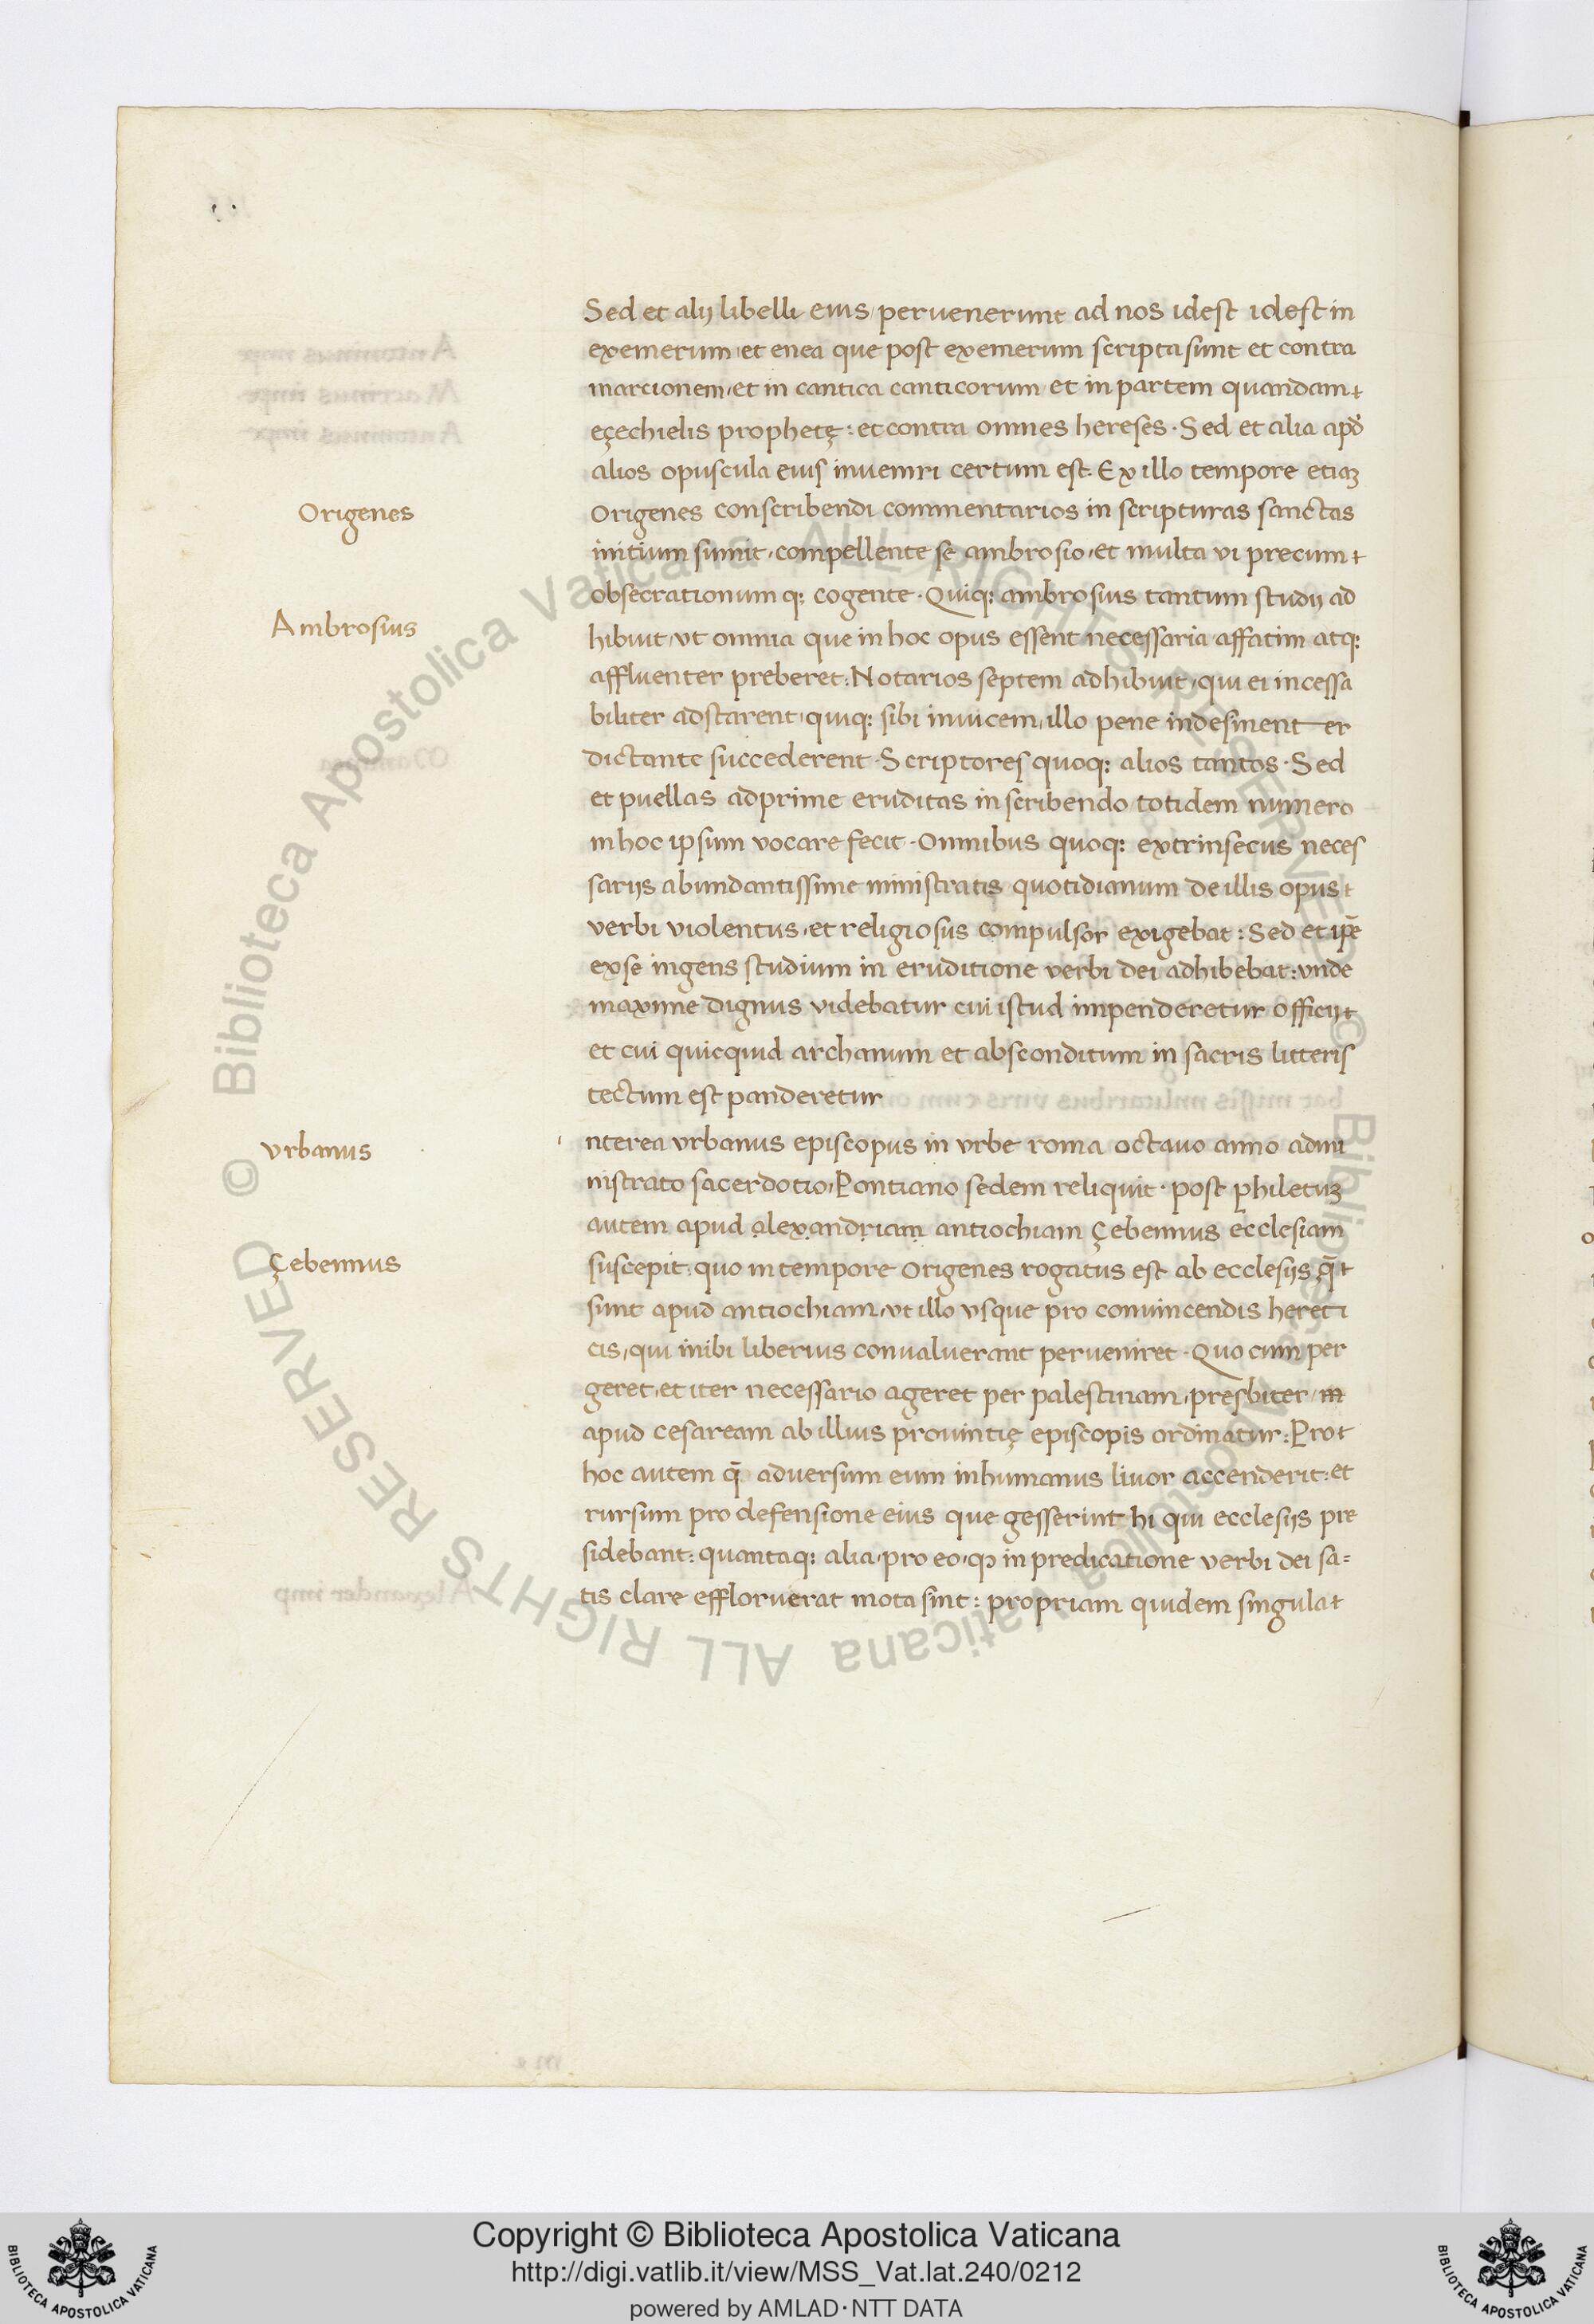 Sed et alij libelli eius peruenerunt ad nos idest idest in
exemerum et enea que post exemerum scripta sunt et contra
marcionem et in cantica canticorum et in partem quandam
eçechielis prophetę: et contra omnes hereses. Sed et alia apđ
alios opuscula eius inueniri certum est. Ex illo tempore etiaʒ
Origenes
Origenes conscribendi commentarios in scripturas sanctas
initium sumit, compellente se ambrosio, et multa vi precum
obsecrationum q: cogente. Quiq: ambrosius tantum studij ad
Ambrosius
hibuit, vt omnia que in hoc opus essent necessaria affatim atq:
affluenter preberet: Notarios septem adhibuit, qui ei incessa
biliter adstarent, quiq: sibi inuicem, illo pene indesinenter
dictante succederent. Scriptores quoq: alios tantos. Sed
et puellas adprime eruditas in scribendo totidem numero
in hoc ipsum vocare fecit. Omnibus quoq: extrinsecus neces
sarijs abundantissime ministratis quotidianum de illis opus
verbi violentus, et religiosus compulsor exigebat: Sed et ip̄e
ex se ingens studium in eruditione verbi dei adhibebat: vnde
maxime dignus videbatur cui istud impenderetur officij
et cui quicquid archanum et absconditum in sacris litteris
tectum est panderetur
Vrbanus
nterea vrbanus episcopus in vrbe roma octauo anno admi
nistrato sacerdotio, Pontiano sedem reliquit. post philetuʒ
autem apud alexandriam antiochiam Çebennus ecclesiam
Çebennus
suscepit: quo in tempore Origenes rogatus est ab ecclesijs q̄
sunt apud antiochiam, vt illo vsque pro conuincendis hereti
cis, qui inibi liberius conualuerant perueniret. Quo cum per
geret, et iter necessario ageret per palestinam, presbiter in
apud cesaream ab illius prouintię episcopis ordinatur: Pro
hoc autem q̄ aduersum eum inhumanus liuor accenderit: et
rursum pro defensione eius que gesserint hi qui ecclesijs pre
sidebant: quantaq: alia, pro eo, ꝙ in predicatione verbi dei sa=
tis clare effloruerat mota sint: propriam quidem singula
© Biblioteca Apostolica Vaticana ALL RIGHTS RESERVED
© Biblioteca Apostolica Vaticana ALL RIGHTS RESERVED
Copyright © Biblioteca Apostolica Vaticana
http://digi.vatlib.it/view/MSS_Vat.lat.240/0212
powered by AMLAD·NTT DATA
BIBLIOTECA APOSTOLICA VATICANA
BIBLIOTECA APOSTOLICA VATICANA